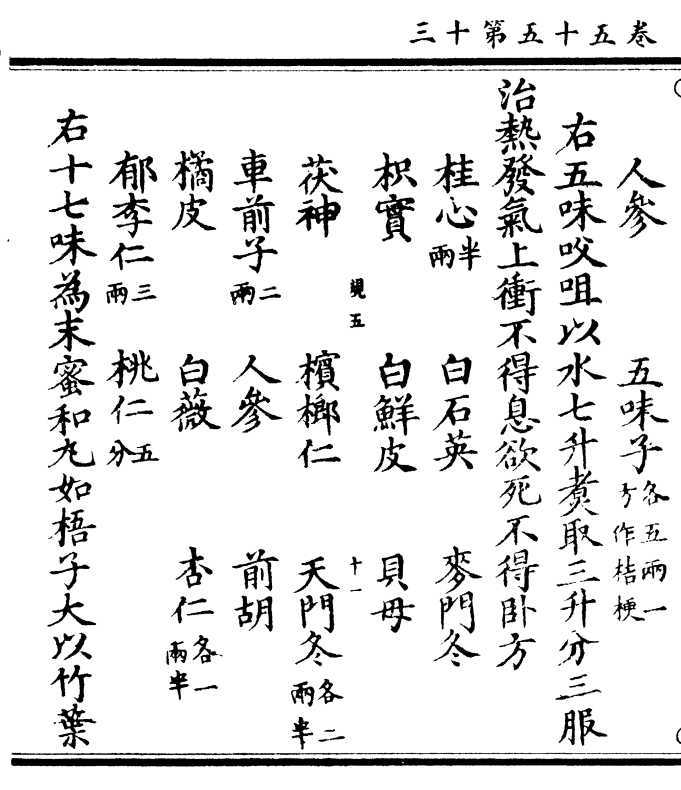 三十第五十五卷
人參 五味子各五兩一方作桔梗
右五味㕮咀以水七升煑取三升分三服
治熱發氣上衝不得息欲死不得卧方
桂心半兩 白石英 麥門冬
枳實 白鮮皮 貝母
覝五 十一
茯神 檳榔仁 天門冬各二兩半
車前子二兩 人參 前胡
橘皮 白薇 杏仁各一兩半
郁李仁三兩 桃仁五分
右十七味為末蜜和丸如梧子大以竹葉